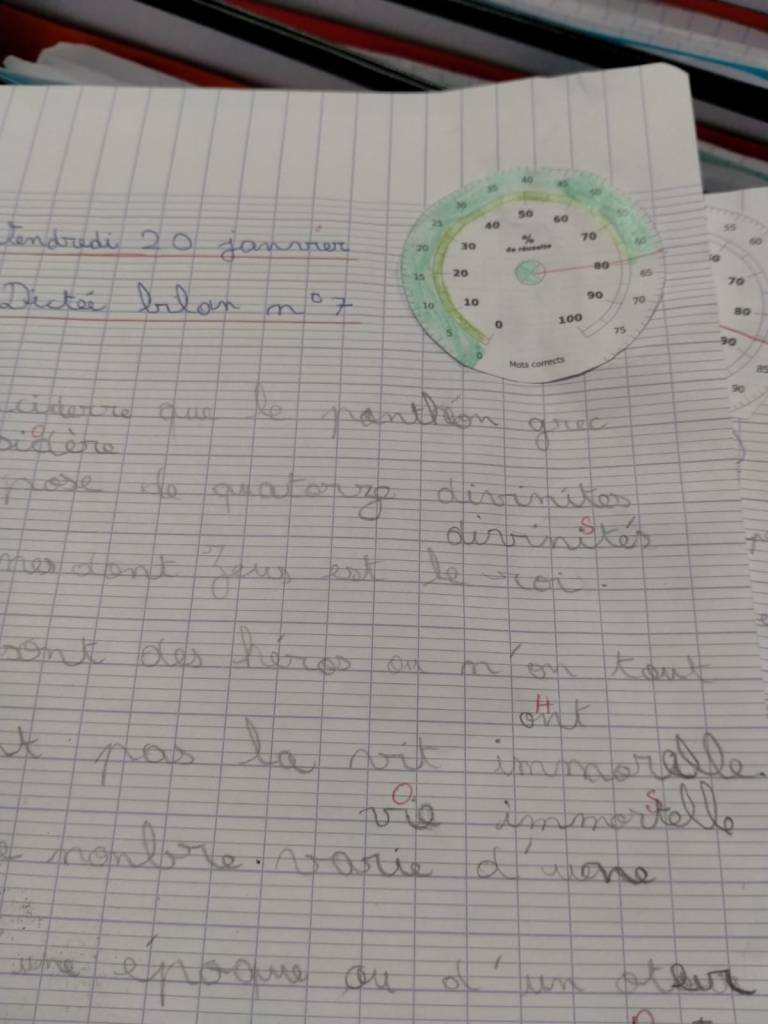 Vendredi 20 janvier
Dictée bilan n° 7
que le panthéon grec
O
de quatorze divinites
S
divinités
dont Zeus est le roi.
sont des héros ou n'on tout
H
ont
pas la vit immoralle.
O S
vie immortelle
nonbre. varie d'une
une époque ou d'un oteur
0 5 10 15 20 25 30 35 40 45 50 55 60 65 70 75
0 10 20 30 40 50 60 70 80 90 100
%
de réussite
Mots corrects
55 60
70
80
90
85
90